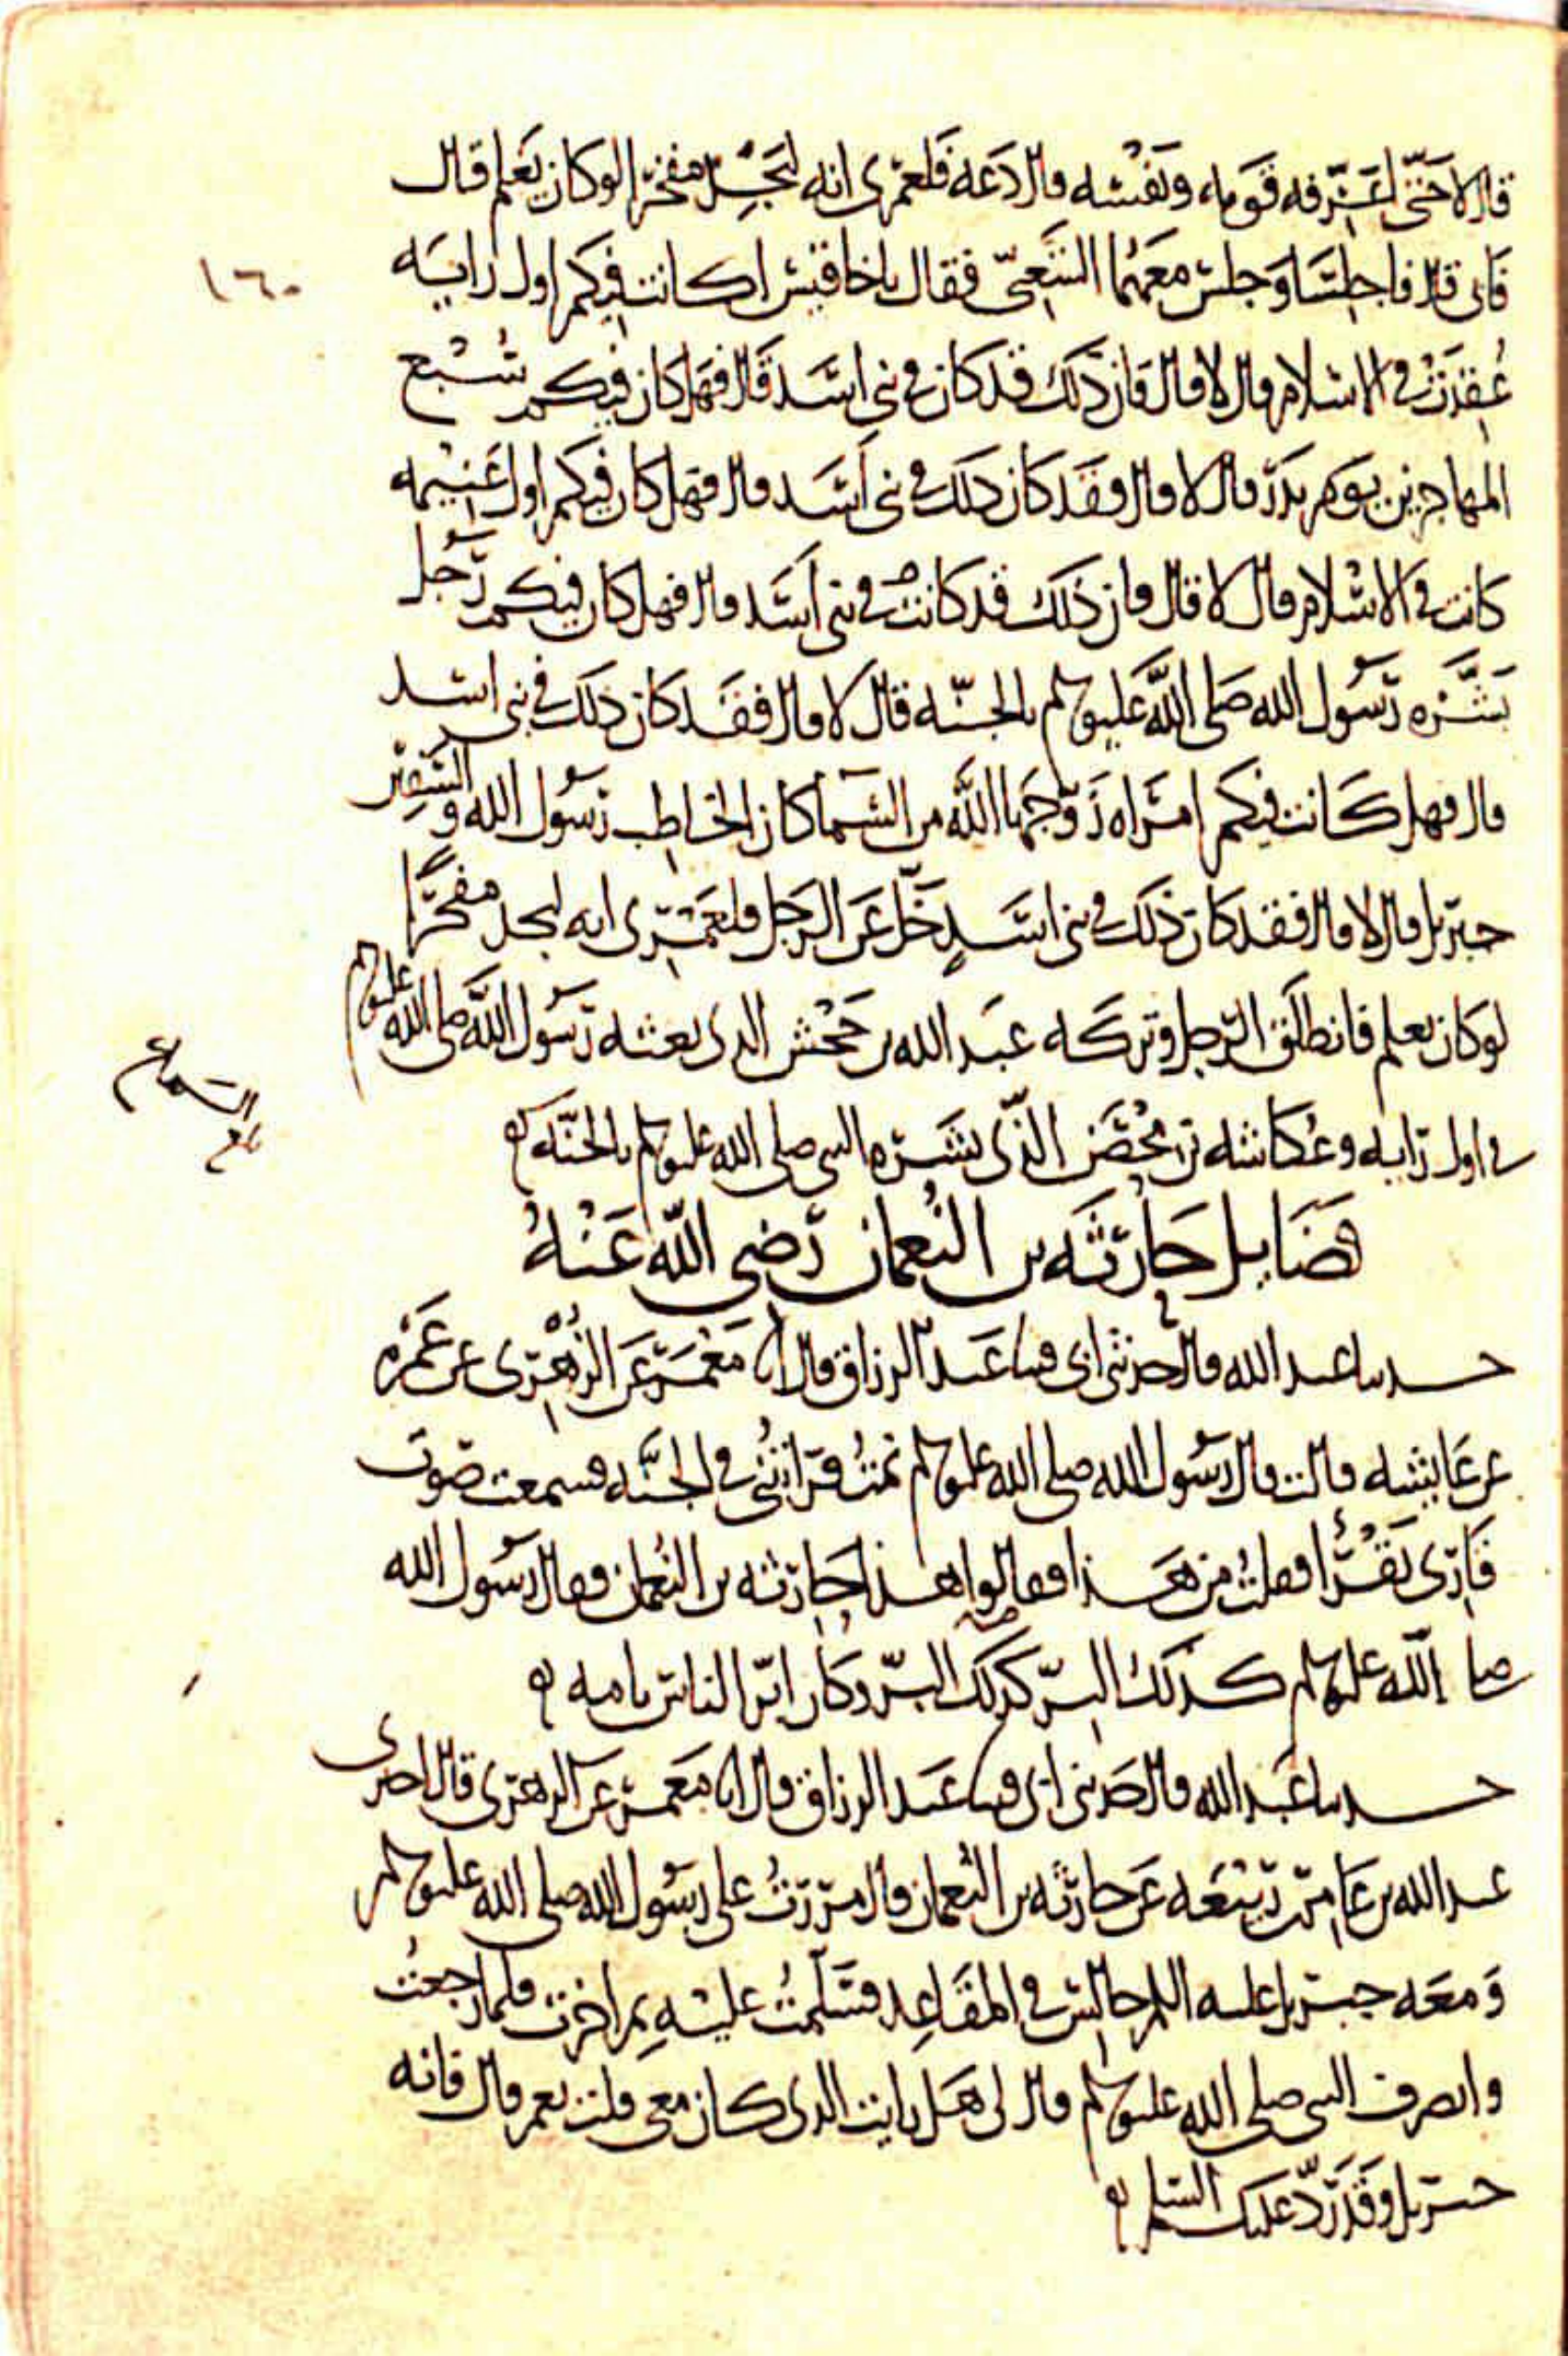 قال لا حتى اعرفه قومه ونفسه قال دعه فلعمرى انه ليجد مفخرا لو كان يعلم قال
فابى قال فاجلسا وجلس معهما الشعبى فقال يا اخا قيس اكانت فيكم اول راية
١٦٠
عقدت فى الاسلام قال لا قال فان ذلك قد كان فى بنى اسد قال فهل كان فيكم سبع
المهاجرين يوم بدر قال لا قال فقد كان ذلك فى بنى اسد قال فهل كان فيكم اول غنيمه
كانت فى الاسلام قال لا قال فان ذلك قد كانت فى بنى اسد قال فهل كان فيكم رجل
بشره رسول الله صلى الله عليه وسلم بالجنه قال لا قال فقد كان ذلك فى بنى اسد
قال فهل كانت فيكم امراه زوجها الله من السما كان الخاطب رسول الله والسفير
جبريل قال لا قال فقد كان ذلك فى بنى اسد خل عن الرجل فلعمرى انه ليجد مفخرا
لو كان يعلم فانطلق الرجل وتركه عبد الله بن جحش الذى بعثه رسول الله صلى الله عليه وسلم
فى اول رايه وعكاشه بن محصن الذى بشره النبى صلى الله عليه وسلم بالجنه
بلغ السماع
فضايل حارثه بن النعمان رضى الله عنه
حدثنا عبد الله قال حدثنى ابى قثنا عبد الرزاق قال انا معمر عن الزهرى عن عمره
عن عايشه قالت قال رسول الله صلى الله عليه وسلم نمت فرايتنى فى الجنه فسمعت صوت
قارى يقرا فقلت من هذا فقالوا هذا حارثه بن النعمان فقال رسول الله
صلى الله عليه وسلم كذلك البر كذلك البر وكان ابر الناس بامه
حدثنا عبد الله قال حدثنى ابى قثنا عبد الرزاق قال انا معمر عن الزهرى قال اخبرنى
عبد الله بن عامر بن ربيعه عن حارثه بن النعمان قال مررت على رسول الله صلى الله عليه وسلم
ومعه جبريل عليه السلم جالس فى المقاعد فسلمت عليه ثم اجزت فلما رجعت
وانصرف النبى صلى الله عليه وسلم قال لى هل رايت الذى كان معى قلت نعم قال فانه
جبريل وقد رد عليك السلم